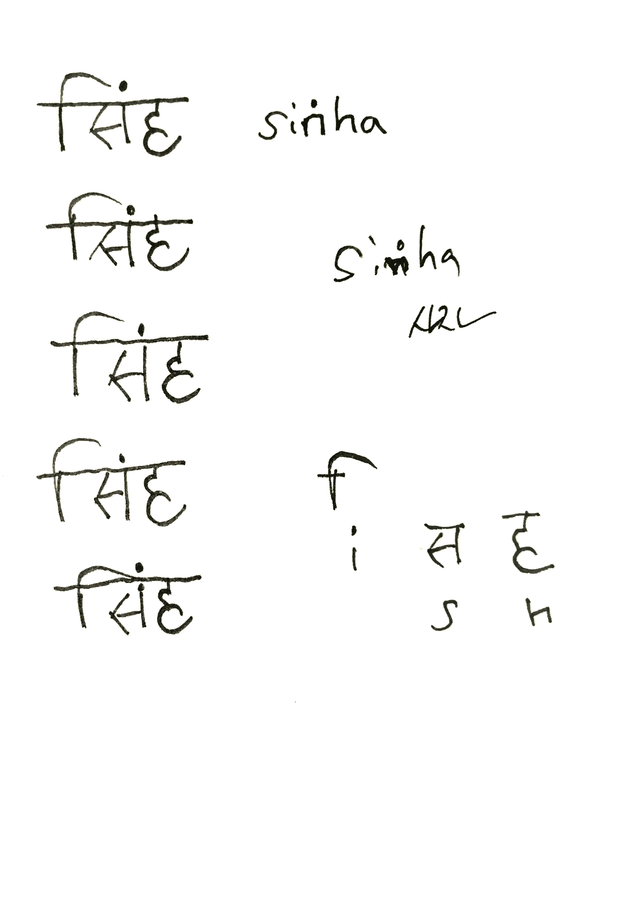 सिंह siṁha
सिंह
siṁha
सिंह
सिंह
ि
i स ह
सिंह
s h